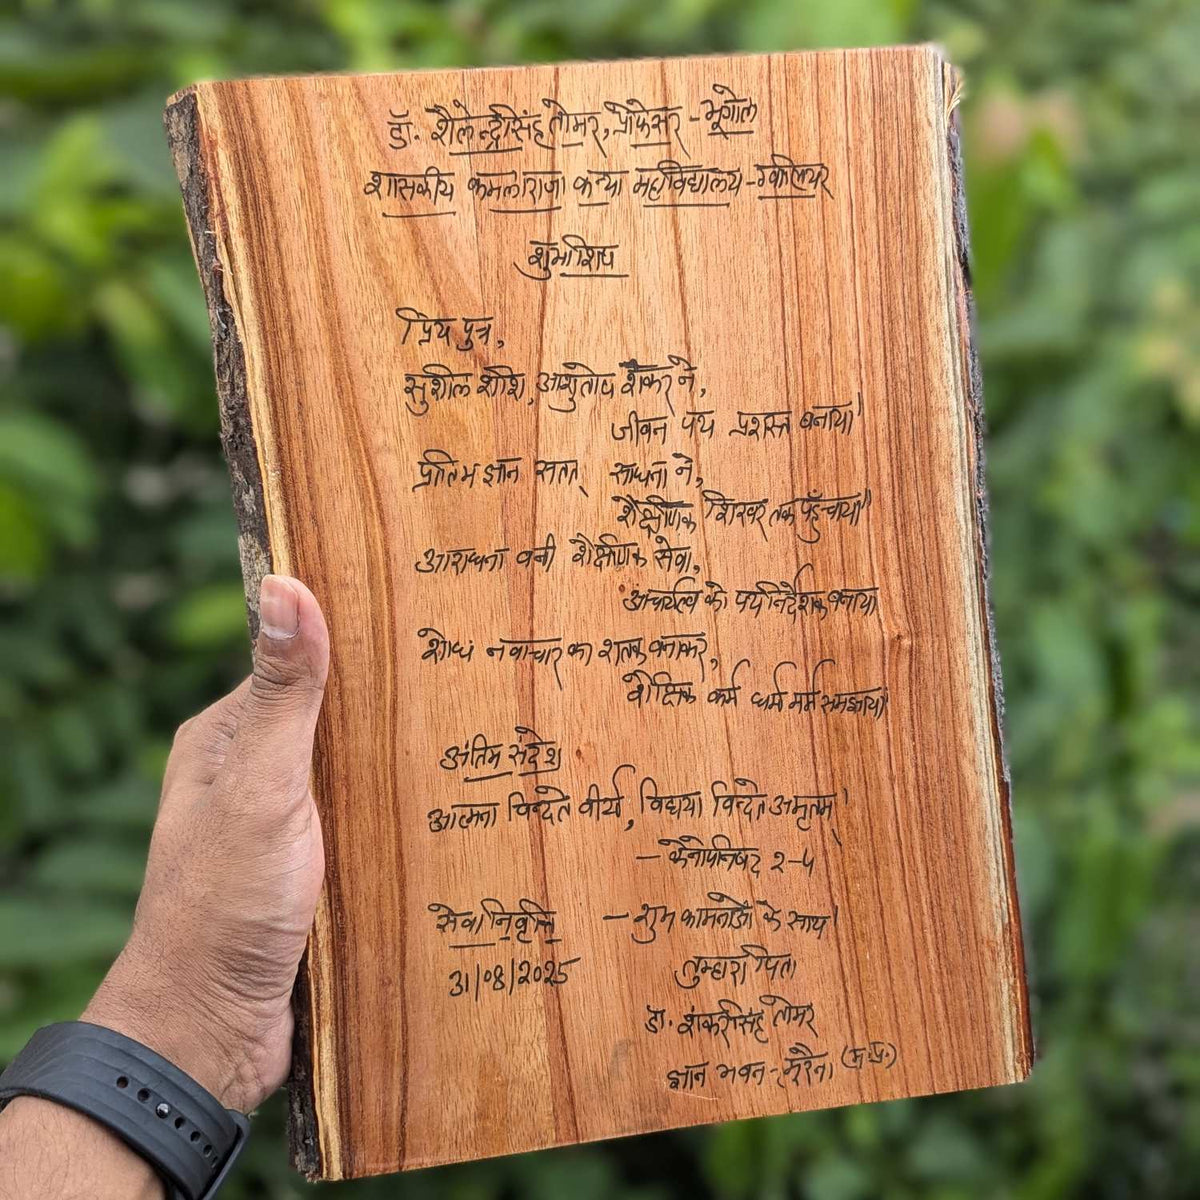 डॉ. शैलेन्द्रसिंह तोमर, प्रोफेसर - भूगोल
शासकीय कमलाराजा कन्या महाविद्यालय - ग्वालियर
शुभाशिष
प्रिय पुत्र,
सुशील शशि, आशुतोष शंकर ने,
जीवन पथ प्रशस्त बनाया।
प्रतिभ ज्ञान सतत् साधना ने,
शैक्षणिक शिखर तक पहुँचाया।
आराधना बनी शैक्षणिक सेवा,
आचार्यत्व को पथ निर्देशक बनाया
शोध नवाचार का बनाकर,
शैक्षिक कर्म धर्म मर्म समझाया।
अंतिम संदेश
आत्मना विन्दते वीर्यं, विद्यया विन्दते अमृतम्।
- केनोपनिषद २-५
सेवा निवृत्ति - शुभ कामनाओं के साथ।
31/08/2025 तुम्हारा पिता
डॉ. शंकरसिंह तोमर
ज्ञान भवन - मुरैना (म.प्र.)